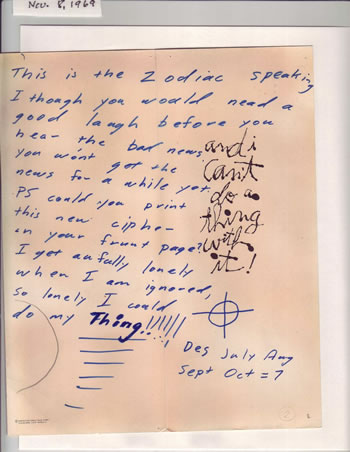 Nov. 8, 1969
This is the Zodiac speaking
I though you would need a
good laugh before you
hear the bad news
you won't get the
news for a while yet
PS could you print
this new cipher
in your frunt page?
I get awfully lonely
when I am ignored,
so lonely I could
do my Thing!!!!!!
and i
can't
do a
thing
with
it!
Des July Aug
Sept Oct = 7